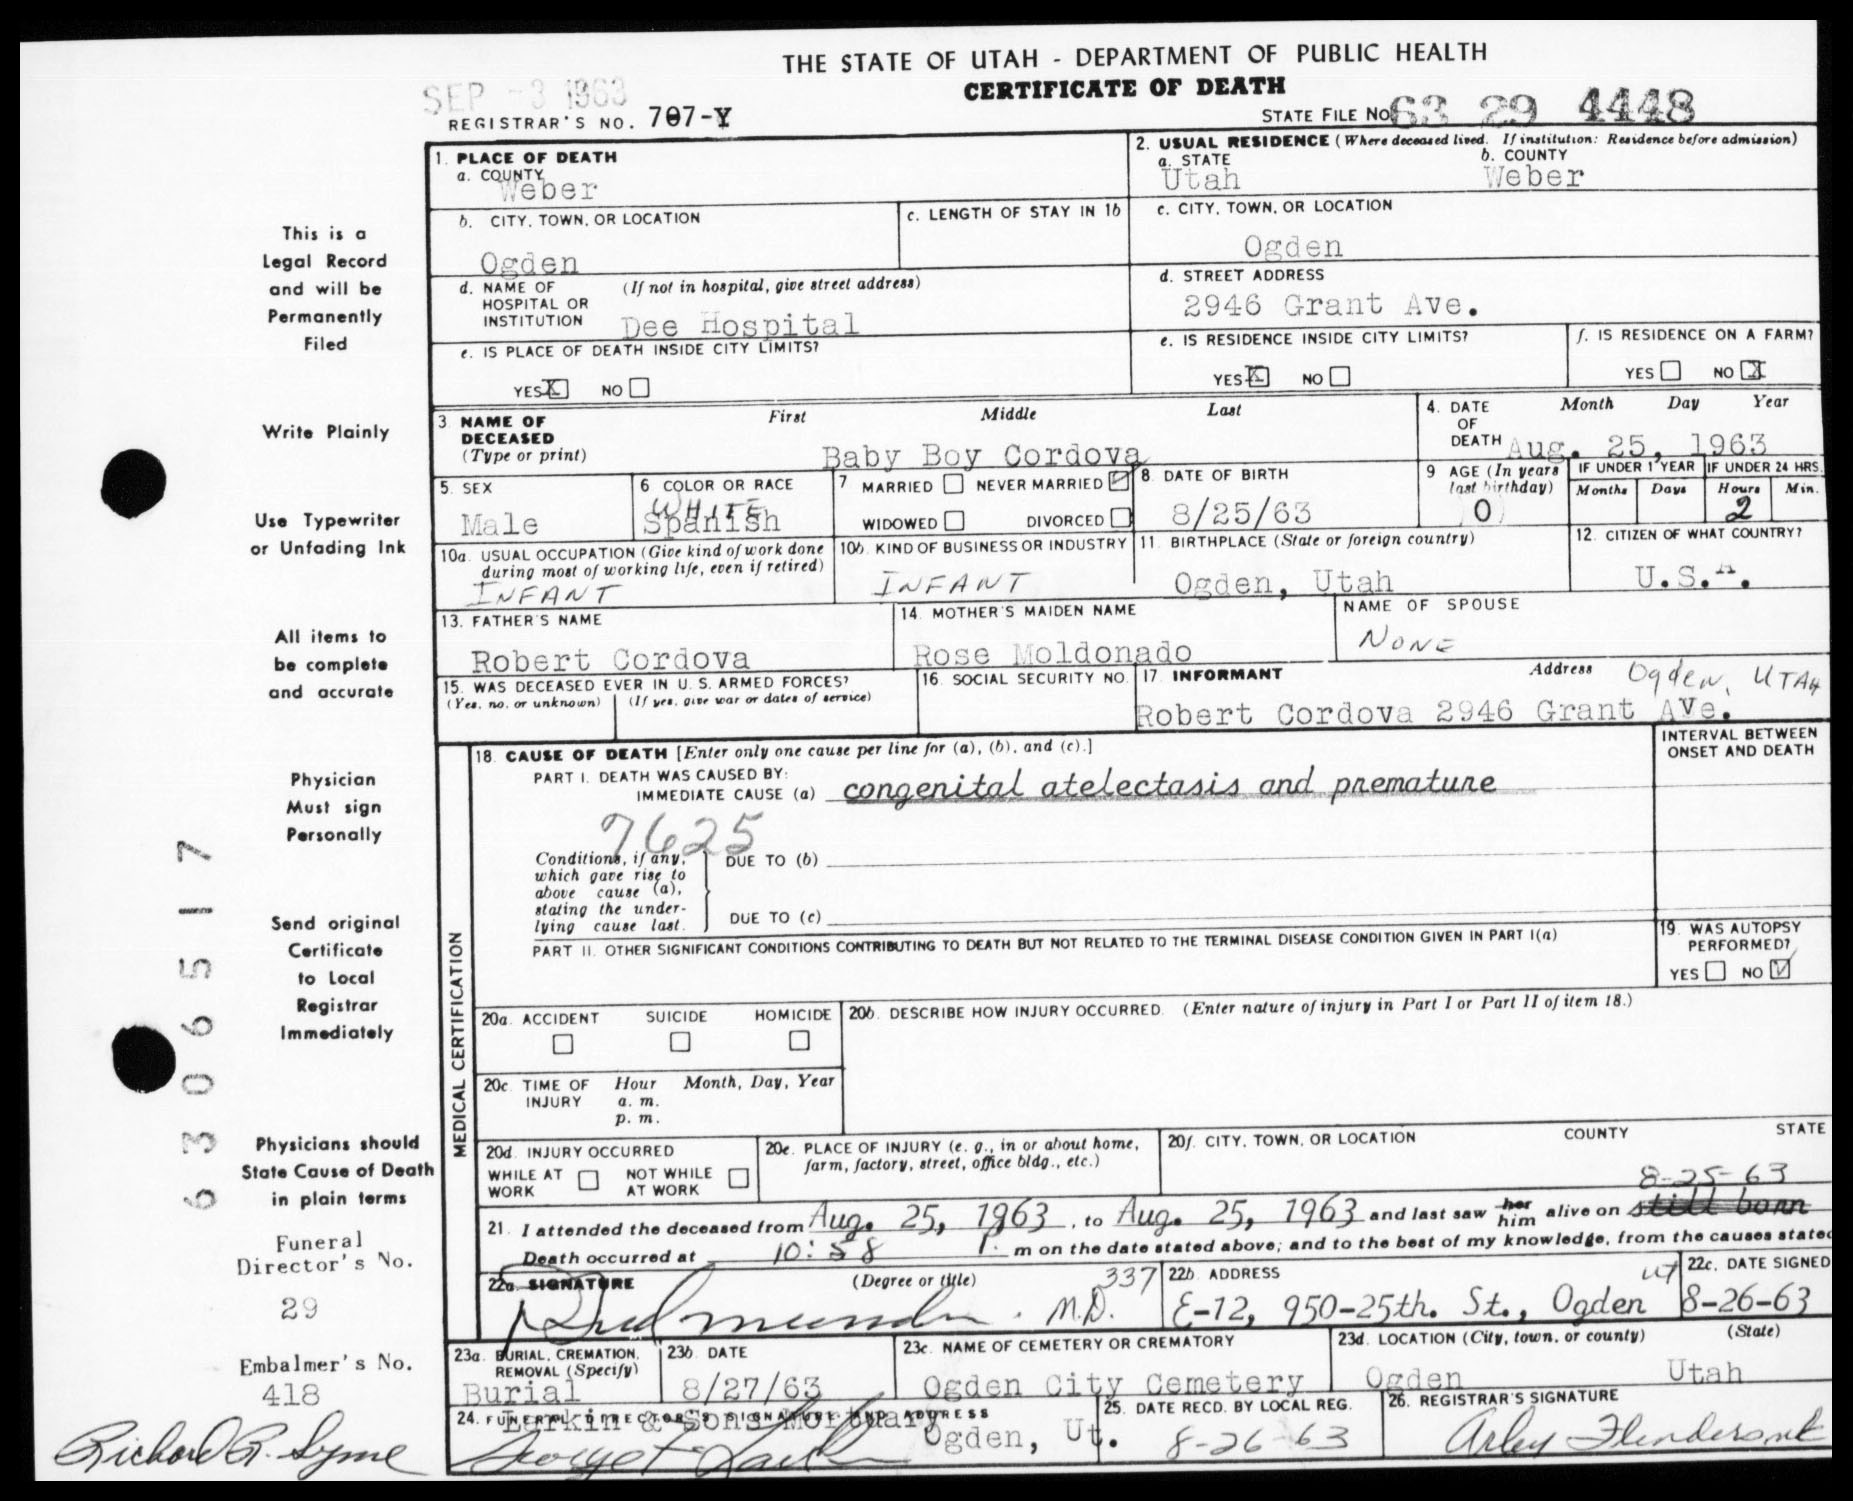 THE STATE OF UTAH - DEPARTMENT OF PUBLIC HEALTH
CERTIFICATE OF DEATH
SEP -3 1963
REGISTRAR'S NO. 707-Y
STATE FILE NO. 63 29 4448
This is a
Legal Record
and will be
Permanently
Filed
Write Plainly
Use Typewriter
or Unfading Ink
All items to
be complete
and accurate
Physician
Must sign
Personally
Send original
Certificate
to Local
Registrar
Immediately
Physicians should
State Cause of Death
in plain terms
Funeral
Director's No.
29
Embalmer's No.
418
6306517
1. PLACE OF DEATH
a. COUNTY
Weber
2. USUAL RESIDENCE (Where deceased lived. If institution: Residence before admission)
a. STATE
Utah
b. COUNTY
Weber
b. CITY, TOWN, OR LOCATION
Ogden
c. LENGTH OF STAY IN 1b
c. CITY, TOWN, OR LOCATION
Ogden
d. NAME OF HOSPITAL OR INSTITUTION
(If not in hospital, give street address)
Dee Hospital
d. STREET ADDRESS
2946 Grant Ave.
e. IS PLACE OF DEATH INSIDE CITY LIMITS?
YES X NO
e. IS RESIDENCE INSIDE CITY LIMITS?
YES X NO
f. IS RESIDENCE ON A FARM?
YES NO X
3. NAME OF DECEASED
(Type or print)
First Middle Last
Baby Boy Cordova
4. DATE OF DEATH
Month Day Year
Aug. 25, 1963
5. SEX
Male
6 COLOR OR RACE
WHITE
Spanish
7 MARRIED NEVER MARRIED
WIDOWED DIVORCED
8. DATE OF BIRTH
8/25/63
9 AGE (In years last birthday)
0
IF UNDER 1 YEAR
Months Days
IF UNDER 24 HRS.
Hours Min.
2
10a. USUAL OCCUPATION (Give kind of work done
during most of working life, even if retired)
INFANT
10b. KIND OF BUSINESS OR INDUSTRY
INFANT
11. BIRTHPLACE (State or foreign country)
Ogden, Utah
12. CITIZEN OF WHAT COUNTRY?
U.S.A.
13. FATHER'S NAME
Robert Cordova
14. MOTHER'S MAIDEN NAME
Rose Moldonado
NAME OF SPOUSE
NONE
15. WAS DECEASED EVER IN U. S. ARMED FORCES?
(Yes, no, or unknown) (If yes, give war or dates of service)
16. SOCIAL SECURITY NO.
17. INFORMANT
Address Ogden, UTAH
Robert Cordova 2946 Grant Ave.
MEDICAL CERTIFICATION
18. CAUSE OF DEATH [Enter only one cause per line for (a), (b), and (c).]
INTERVAL BETWEEN
ONSET AND DEATH
PART I. DEATH WAS CAUSED BY:
IMMEDIATE CAUSE (a) congenital atelectasis and premature
7625
Conditions, if any,
which gave rise to
above cause (a),
stating the under-
lying cause last.
DUE TO (b)
DUE TO (c)
PART II. OTHER SIGNIFICANT CONDITIONS CONTRIBUTING TO DEATH BUT NOT RELATED TO THE TERMINAL DISEASE CONDITION GIVEN IN PART I(a)
19. WAS AUTOPSY
PERFORMED?
YES NO
20a. ACCIDENT SUICIDE HOMICIDE
20b. DESCRIBE HOW INJURY OCCURRED. (Enter nature of injury in Part I or Part II of item 18.)
20c. TIME OF INJURY
Hour Month, Day, Year
a. m.
p. m.
20d. INJURY OCCURRED
WHILE AT WORK
NOT WHILE AT WORK
20e. PLACE OF INJURY (e. g., in or about home,
farm, factory, street, office bldg., etc.)
20f. CITY, TOWN, OR LOCATION COUNTY STATE
8-25-63
21. I attended the deceased from Aug. 25, 1963, to Aug. 25, 1963 and last saw her him alive on still born
Death occurred at 10:58 P. m on the date stated above; and to the best of my knowledge, from the causes stated
22a. SIGNATURE
(Degree or title)
337
M.D.
22b. ADDRESS
E-12, 950-25th. St., Ogden UT
22c. DATE SIGNED
8-26-63
23a. BURIAL, CREMATION,
REMOVAL (Specify)
Burial
23b. DATE
8/27/63
23c. NAME OF CEMETERY OR CREMATORY
Ogden City Cemetery
23d. LOCATION (City, town, or county) (State)
Ogden Utah
24. FUNERAL DIRECTOR'S SIGNATURE AND ADDRESS
Larkin & Sons Mortuary
Ogden, Ut.
25. DATE RECD. BY LOCAL REG.
8-26-63
26. REGISTRAR'S SIGNATURE
Richard R. Syme